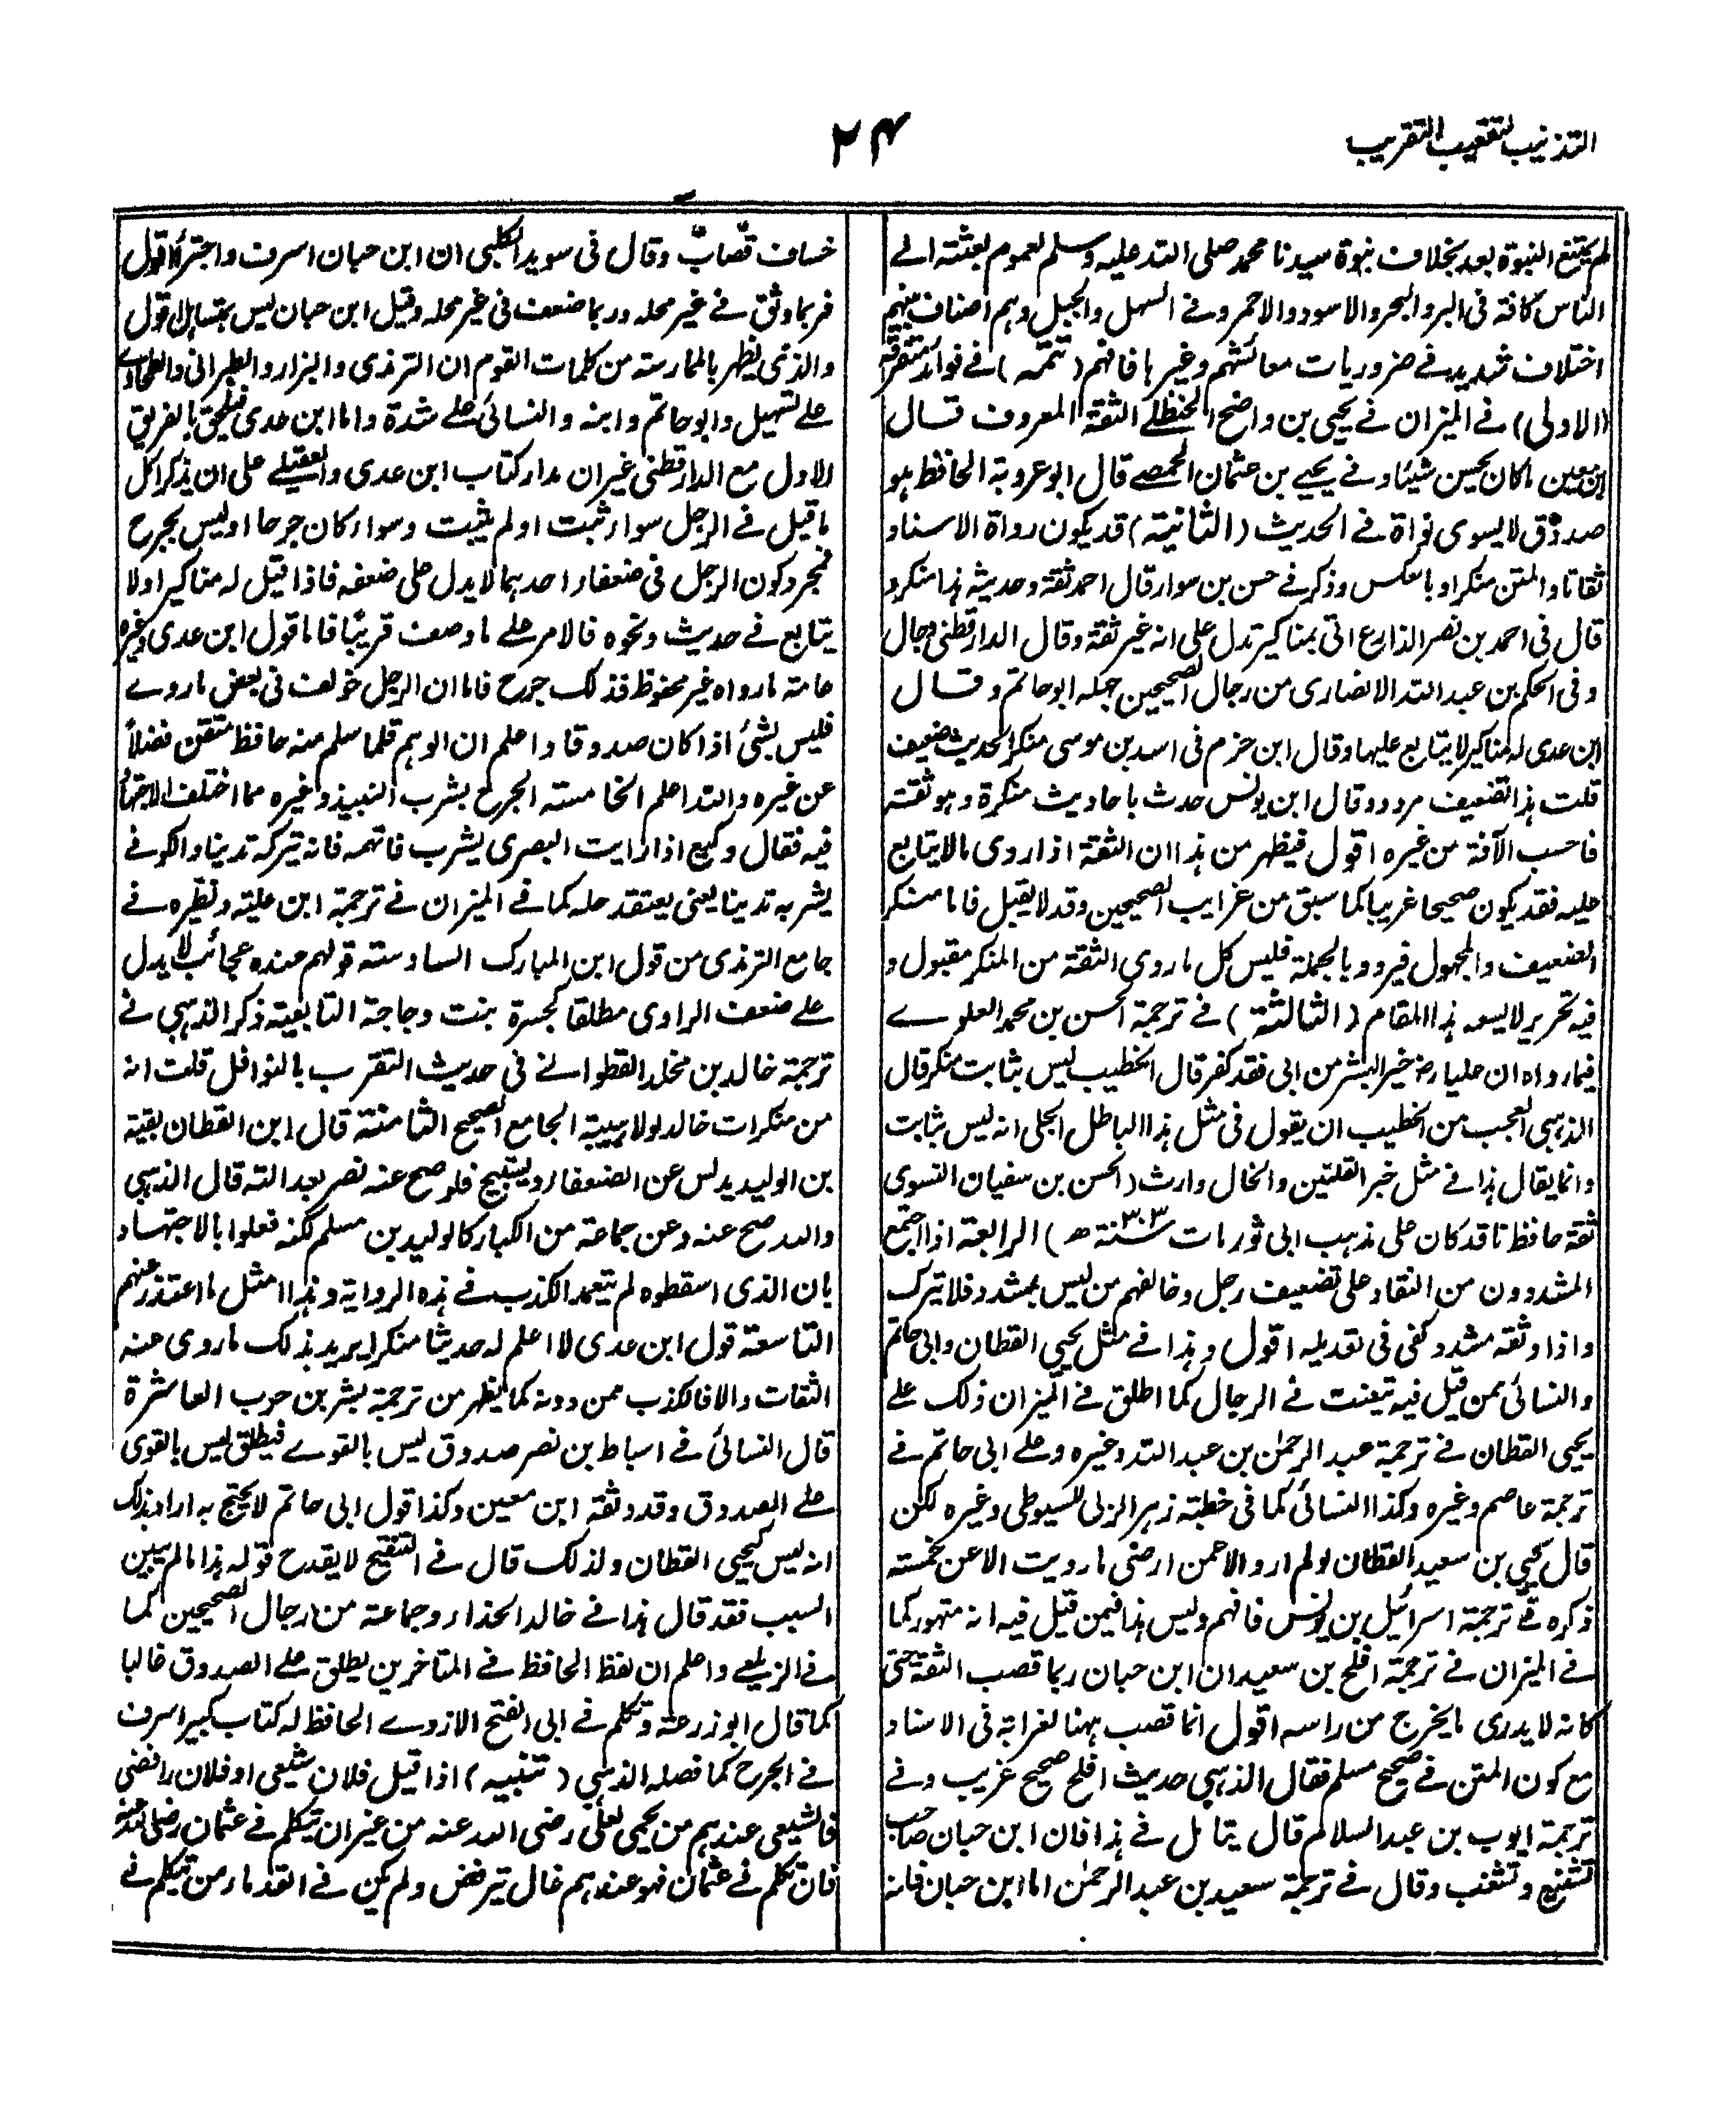 التذنيب لتعقيب التقريب
۲۴
لم يمتنع النبوة بعد بخلاف نبوة سيدنا محمد صلى الله عليه وسلم لعموم بعثته الے
الناس كافة فى البر والبحر والاسود والاحمر وفے السهل والجبل وهم اصناف بينهم
اختلاف شديد فے ضروريات معائشهم وغيرها فافهم (تتمه) فے فوائد متفرقه
(الاولى) فے الميزان فے يحيى بن واضح الحنظلے الثقة المعروف قال
ابن معين ما كان يحسن شيئا وفے يحيے بن عثمان الحمصے قال ابو عروبة الحافظ هو
صدوق لا يسوى نواة فے الحديث (الثانية) قد يكون رواة الاسناد
ثقاتا والمتن منكرا وبالعكس وذكر فے حسن بن سوار قال احمد ثقة وحديثه هذا منكر و
قال فى احمد بن نصر الذارع اتى بمناكير تدل على انه غير ثقة وقال الدارقطنى دجال
وفى الحكم بن عبد الله الانصارى من رجال الصحيحين جهله ابو حاتم وقال
ابن عدى له مناكير لا يتابع عليها وقال ابن حزم فى اسد بن موسى منكر الحديث ضعيف
قلت هذا تضعيف مردود وقال ابن يونس حدث باحاديث منكرة وهو ثقة
فاحسب الآفة من غيره اقول فيظهر من هذا ان الثقة اذا روى ما لا يتابع
عليه فقد يكون صحيحا غريبا كما سبق من غرايب الصحيحين وقد لا يقبل فاما منكر
الضعيف والمجهول فيرد وبالجملة فليس كل ما روى الثقة من المنكر مقبول و
فيه تحرير لا يسعه هذا المقام (الثالثة) فے ترجمة الحسن بن محمد العلوے
فيما رواه ان عليا رض خير البشر من ابى فقد كفر قال الخطيب ليس بثابت منكر قال
الذهبى العجب من الخطيب ان يقول فى مثل هذا الباطل الجلى انه ليس بثابت
وانما يقال هذا فے مثل خبر القلتين والخال وارث (الحسن بن سفيان النسوى
ثقة حافظ ناقد كان على مذهب ابى ثور مات سنة ۳۰۳ ھ) الرابعة اذا اجتمع
المشددون من النقاد على تضعيف رجل وخالفهم من ليس بمشدد فلا يترك
واذا وثقه مشدد كفى فى تعديله اقول وهذا فے مثل يحيى القطان وابى حاتم
والنسائى ممن قيل فيه يتعنت فے الرجال كما اطلق فے الميزان ذلك علے
يحيى القطان فے ترجمة عبد الرحمٰن بن عبد الله وغيره وعلے ابى حاتم فے
ترجمة عاصم وغيره وكذا النسائى كما فى خطبة زهر الربى للسيوطى وغيره لكن
قال يحيى بن سعيد القطان لو لم ارو الا عمن ارضى ما رويت الا عن خمسة
ذكره فے ترجمة اسرائيل بن يونس فافهم وليس هذا فيمن قيل فيه انه متهور كما
فے الميزان فے ترجمة افلح بن سعيد ان ابن حبان ربما قصب الثقة حتى
كانه لا يدرى ما يخرج من راسه اقول انما قصب ههنا لغرابة فى الاسناد
مع كون المتن فے صحيح مسلم فقال الذهبى حديث افلح صحيح غريب وفے
ترجمة ايوب بن عبد السلام قال يتامل فے هذا فان ابن حبان صاحب
تشنيع وتشغب وقال فے ترجمة سعيد بن عبد الرحمٰن اما ابن حبان فانه
خساف قصاب وقال فى سويد الكلبى ان ابن حبان اسرف واجترأ اقول
فربما وثق فے غير محله وربما ضعف فى غير محله وقيل ابن حبان ليس بمتساهل اقول
والذى يظهر بالممارسة من كلمات القوم ان الترمذى والبزار والطبرانى والطحاوے
علے تسهيل وابو حاتم وابنه والنسائى علے شدة واما ابن عدى فيلحق بالفريق
الاول مع الدارقطنى غير ان مدار كتاب ابن عدى والعقيلے على ان يذكرا كل
ما قيل فے الرجل سواء ثبت او لم يثبت وسواء كان جرحا او ليس بجرح
فمجرد كون الرجل فى ضعفاء احدهما لا يدل على ضعفه فاذا قيل له مناكير او لا
يتابع فے حديث ونحوه فالامر علے ما وصف قريبا فاما قول ابن عدى وغيره
عامة ما رواه غير محفوظ فذلك جرح فاما ان الرجل خولف فى بعض ما روے
فليس بشئ اذا كان صدوقا واعلم ان الوهم قلما سلم منه حافظ متقن فضلاً
عن غيره والله اعلم الخامسة الجرح بشرب النبيذ وغيره مما اختلف الاجتهاد
فيه فقال وكيع اذا رايت البصرى يشرب فاتهمه فانه يتركه تدينا والكوفے
يشربه تدينا يعنى يعتقد حله كما فے الميزان فے ترجمة ابن علية ونظيره فے
جامع الترمذى من قول ابن المبارك السادسة قولهم عنده عجائب لا يدل
علے ضعف الراوى مطلقا كجسرة بنت دجاجة التابعية ذكر الذهبى فے
ترجمة خالد بن مخلد القطوانے فى حديث التقرب بالنوافل قلت انه
من منكرات خالد لولا هيبة الجامع الصحيح الثامنة قال ابن القطان بقية
بن الوليد يدلس عن الضعفاء ويستبيح فلو صح عنه نصر بعد الته قال الذهبى
والله صح عنه وعن جماعة من الكبار كالوليد بن مسلم لكنه فعلوا بالاجتهاد
بان الذى اسقطوه لم يتعمد الكذب فے هذه الرواية وهذا مثل ما اعتذر عنهم
التاسعة قول ابن عدى لا اعلم له حديثا منكرا يريد بذلك ما روى عنه
الثقات والا فالكذب ممن دونه كما يظهر من ترجمة بشر بن حرب العاشرة
قال النسائى فے اسباط بن نصر صدوق ليس بالقوے فيطلق ليس بالقوى
علے الصدوق وقد وثقه ابن معين وكذا قول ابى حاتم لا يحتج به اراد بذلك
انه ليس كيحيى القطان ولذلك قال فے التنقيح لا يقدح قوله هذا ما لم يبين
السبب فقد قال هذا فے خالد الحذاء وجماعة من رجال الصحيحين كما
فے الزيلعے واعلم ان لفظ الحافظ فے المتاخرين يطلق علے الصدوق غالبا
كما قال ابو زرعة وتكلم فے ابى الفتح الازدے الحافظ له كتاب كبير اسرف
فے الجرح كما فصله الذهبى (تنبيه) اذا قيل فلان شيعى او فلان رافضى
فالشيعى عندهم من يحمى لعلى رضى الله عنه من غير ان يتكلم فے عثمان رضى الله عنه
فان تكلم فے عثمان فهو عندهم غال يترفض ولم يكن فے القدماء من يتكلم فے